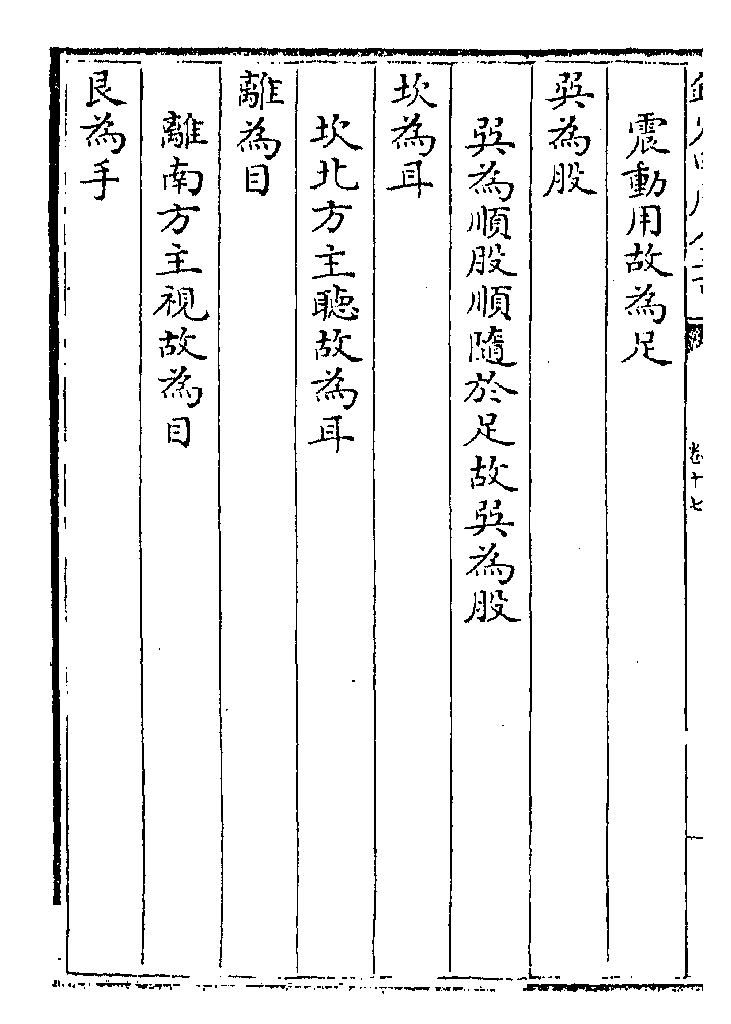 震動用故為足
巽為股
巽為順股順隨於足故巽為股
坎為耳
坎北方主聽故為耳
離為目
離南方主視故為目
艮為手
卷十七